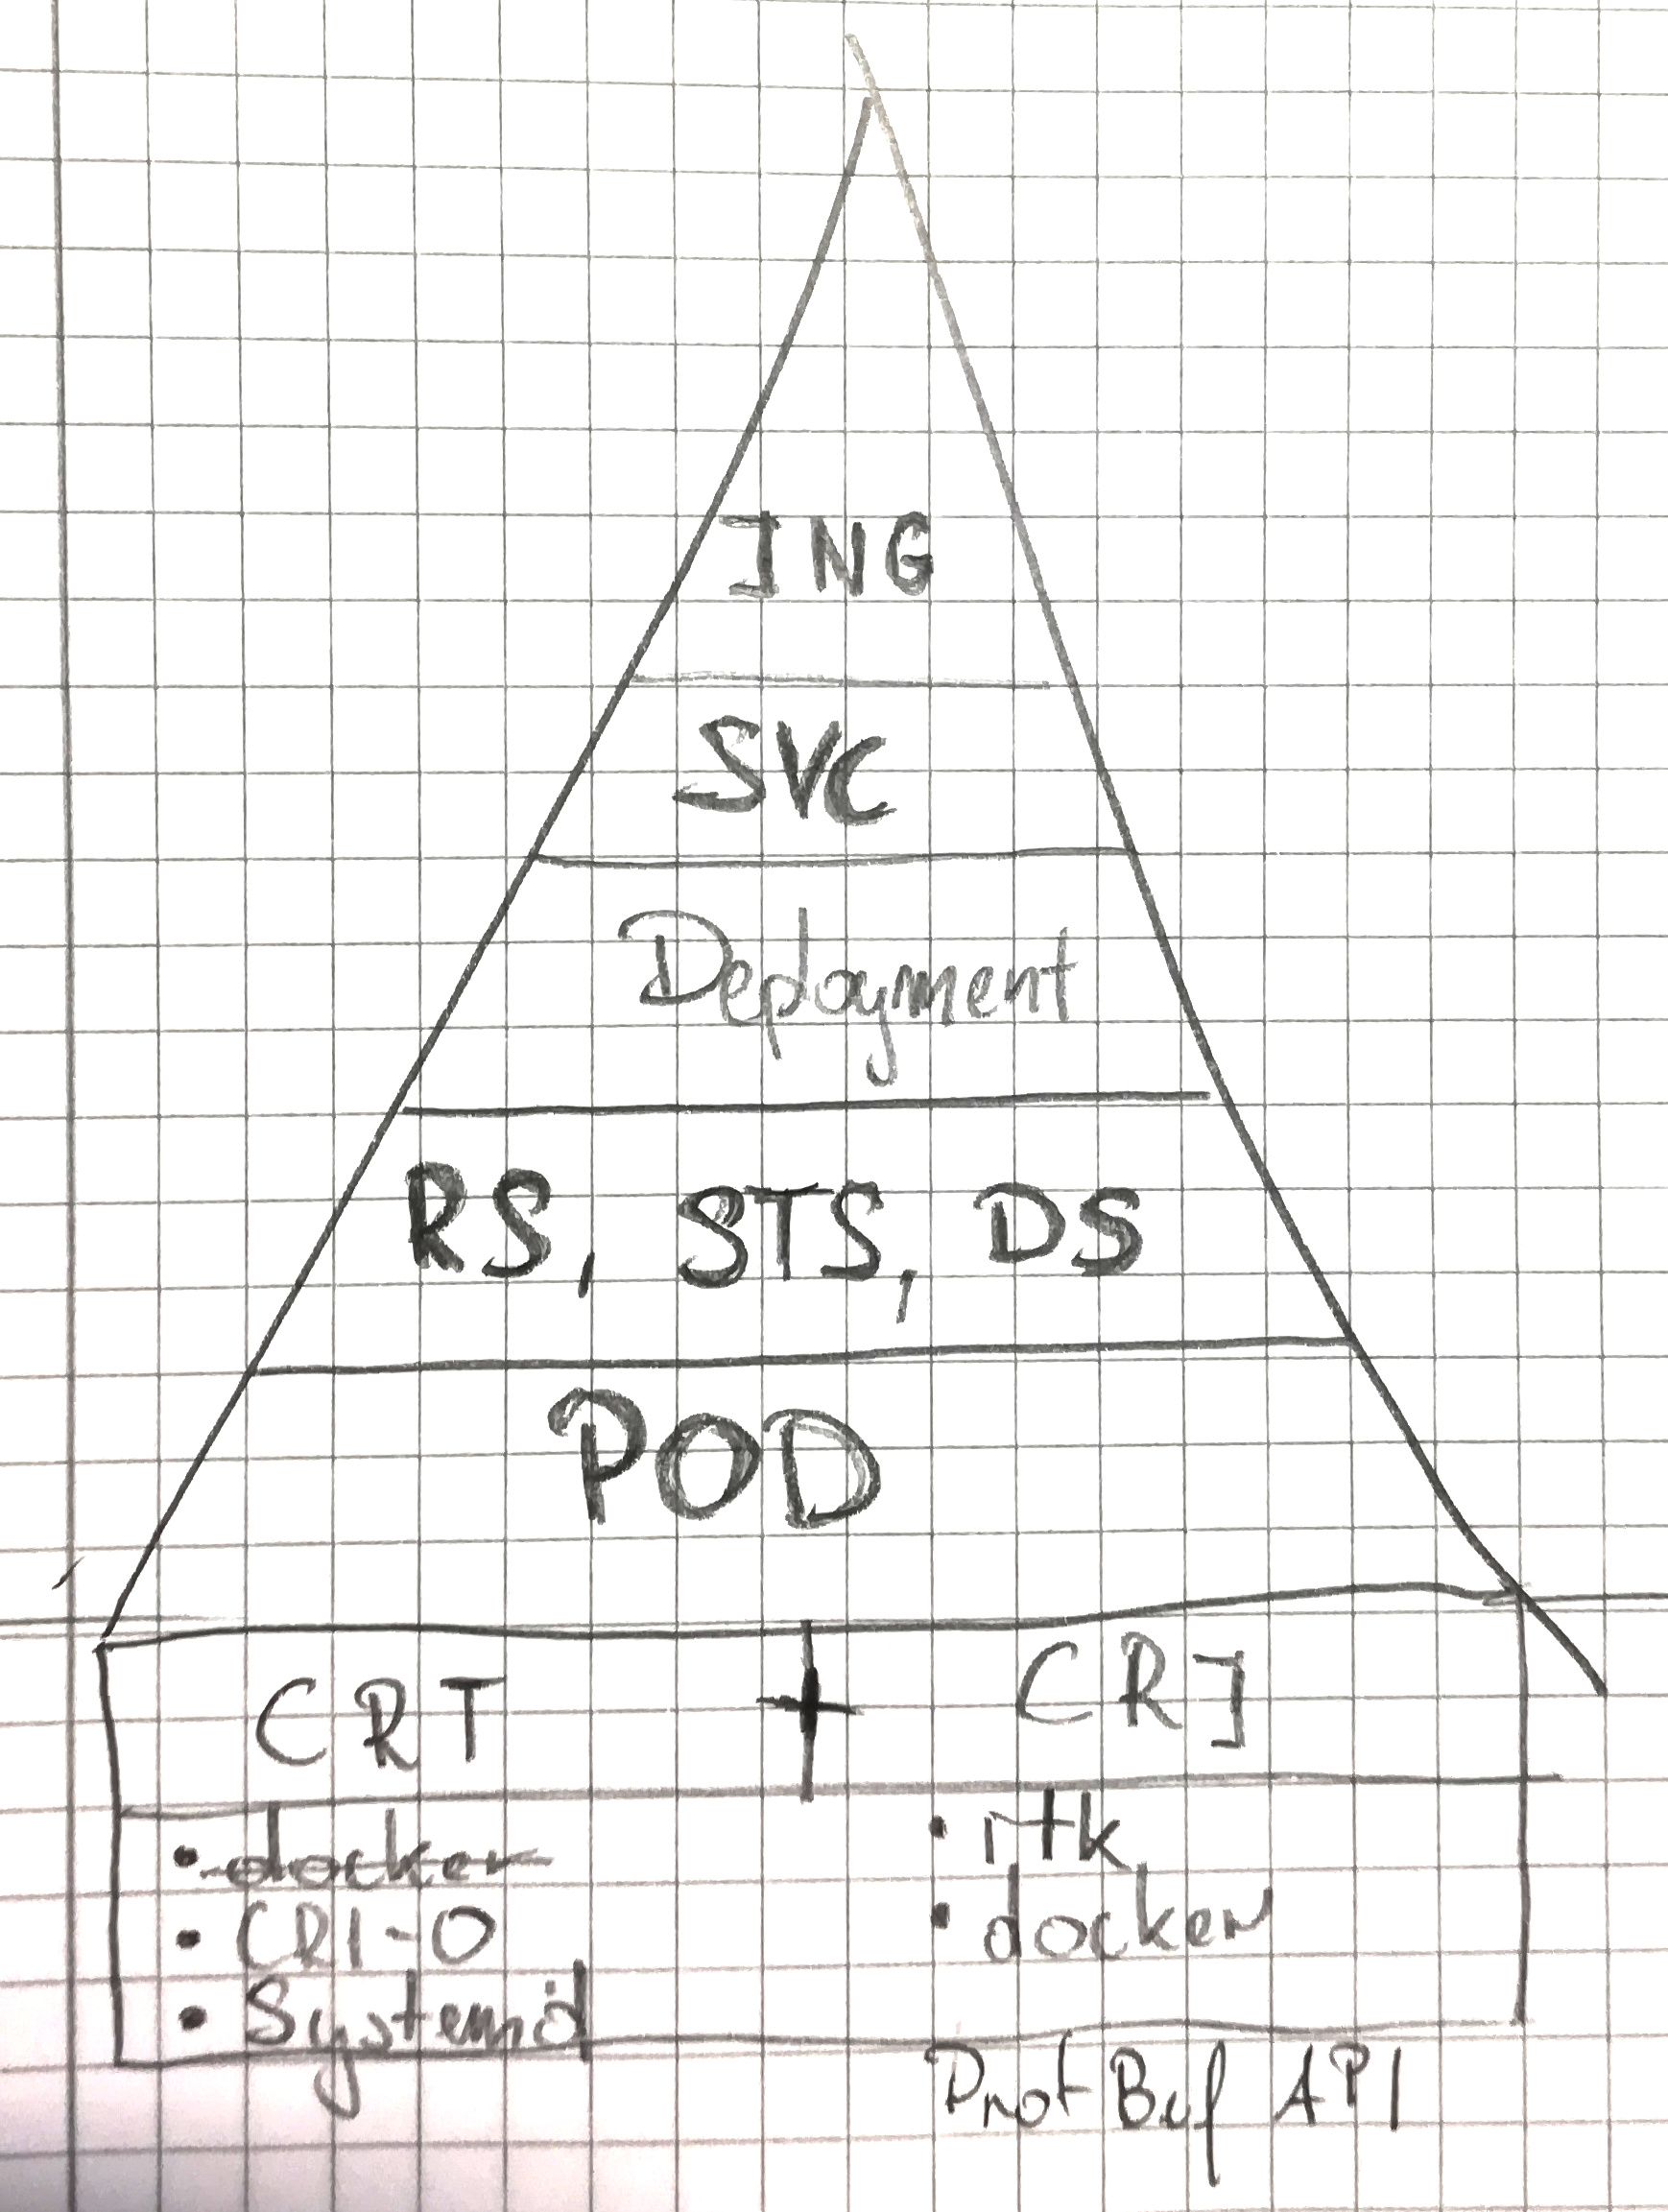 ING
SVC
Deployment
RS, STS, DS
POD
CRT + CRI
• docker
• CRI-O
• Systemd
• rtk
• docker
ProtBuf API